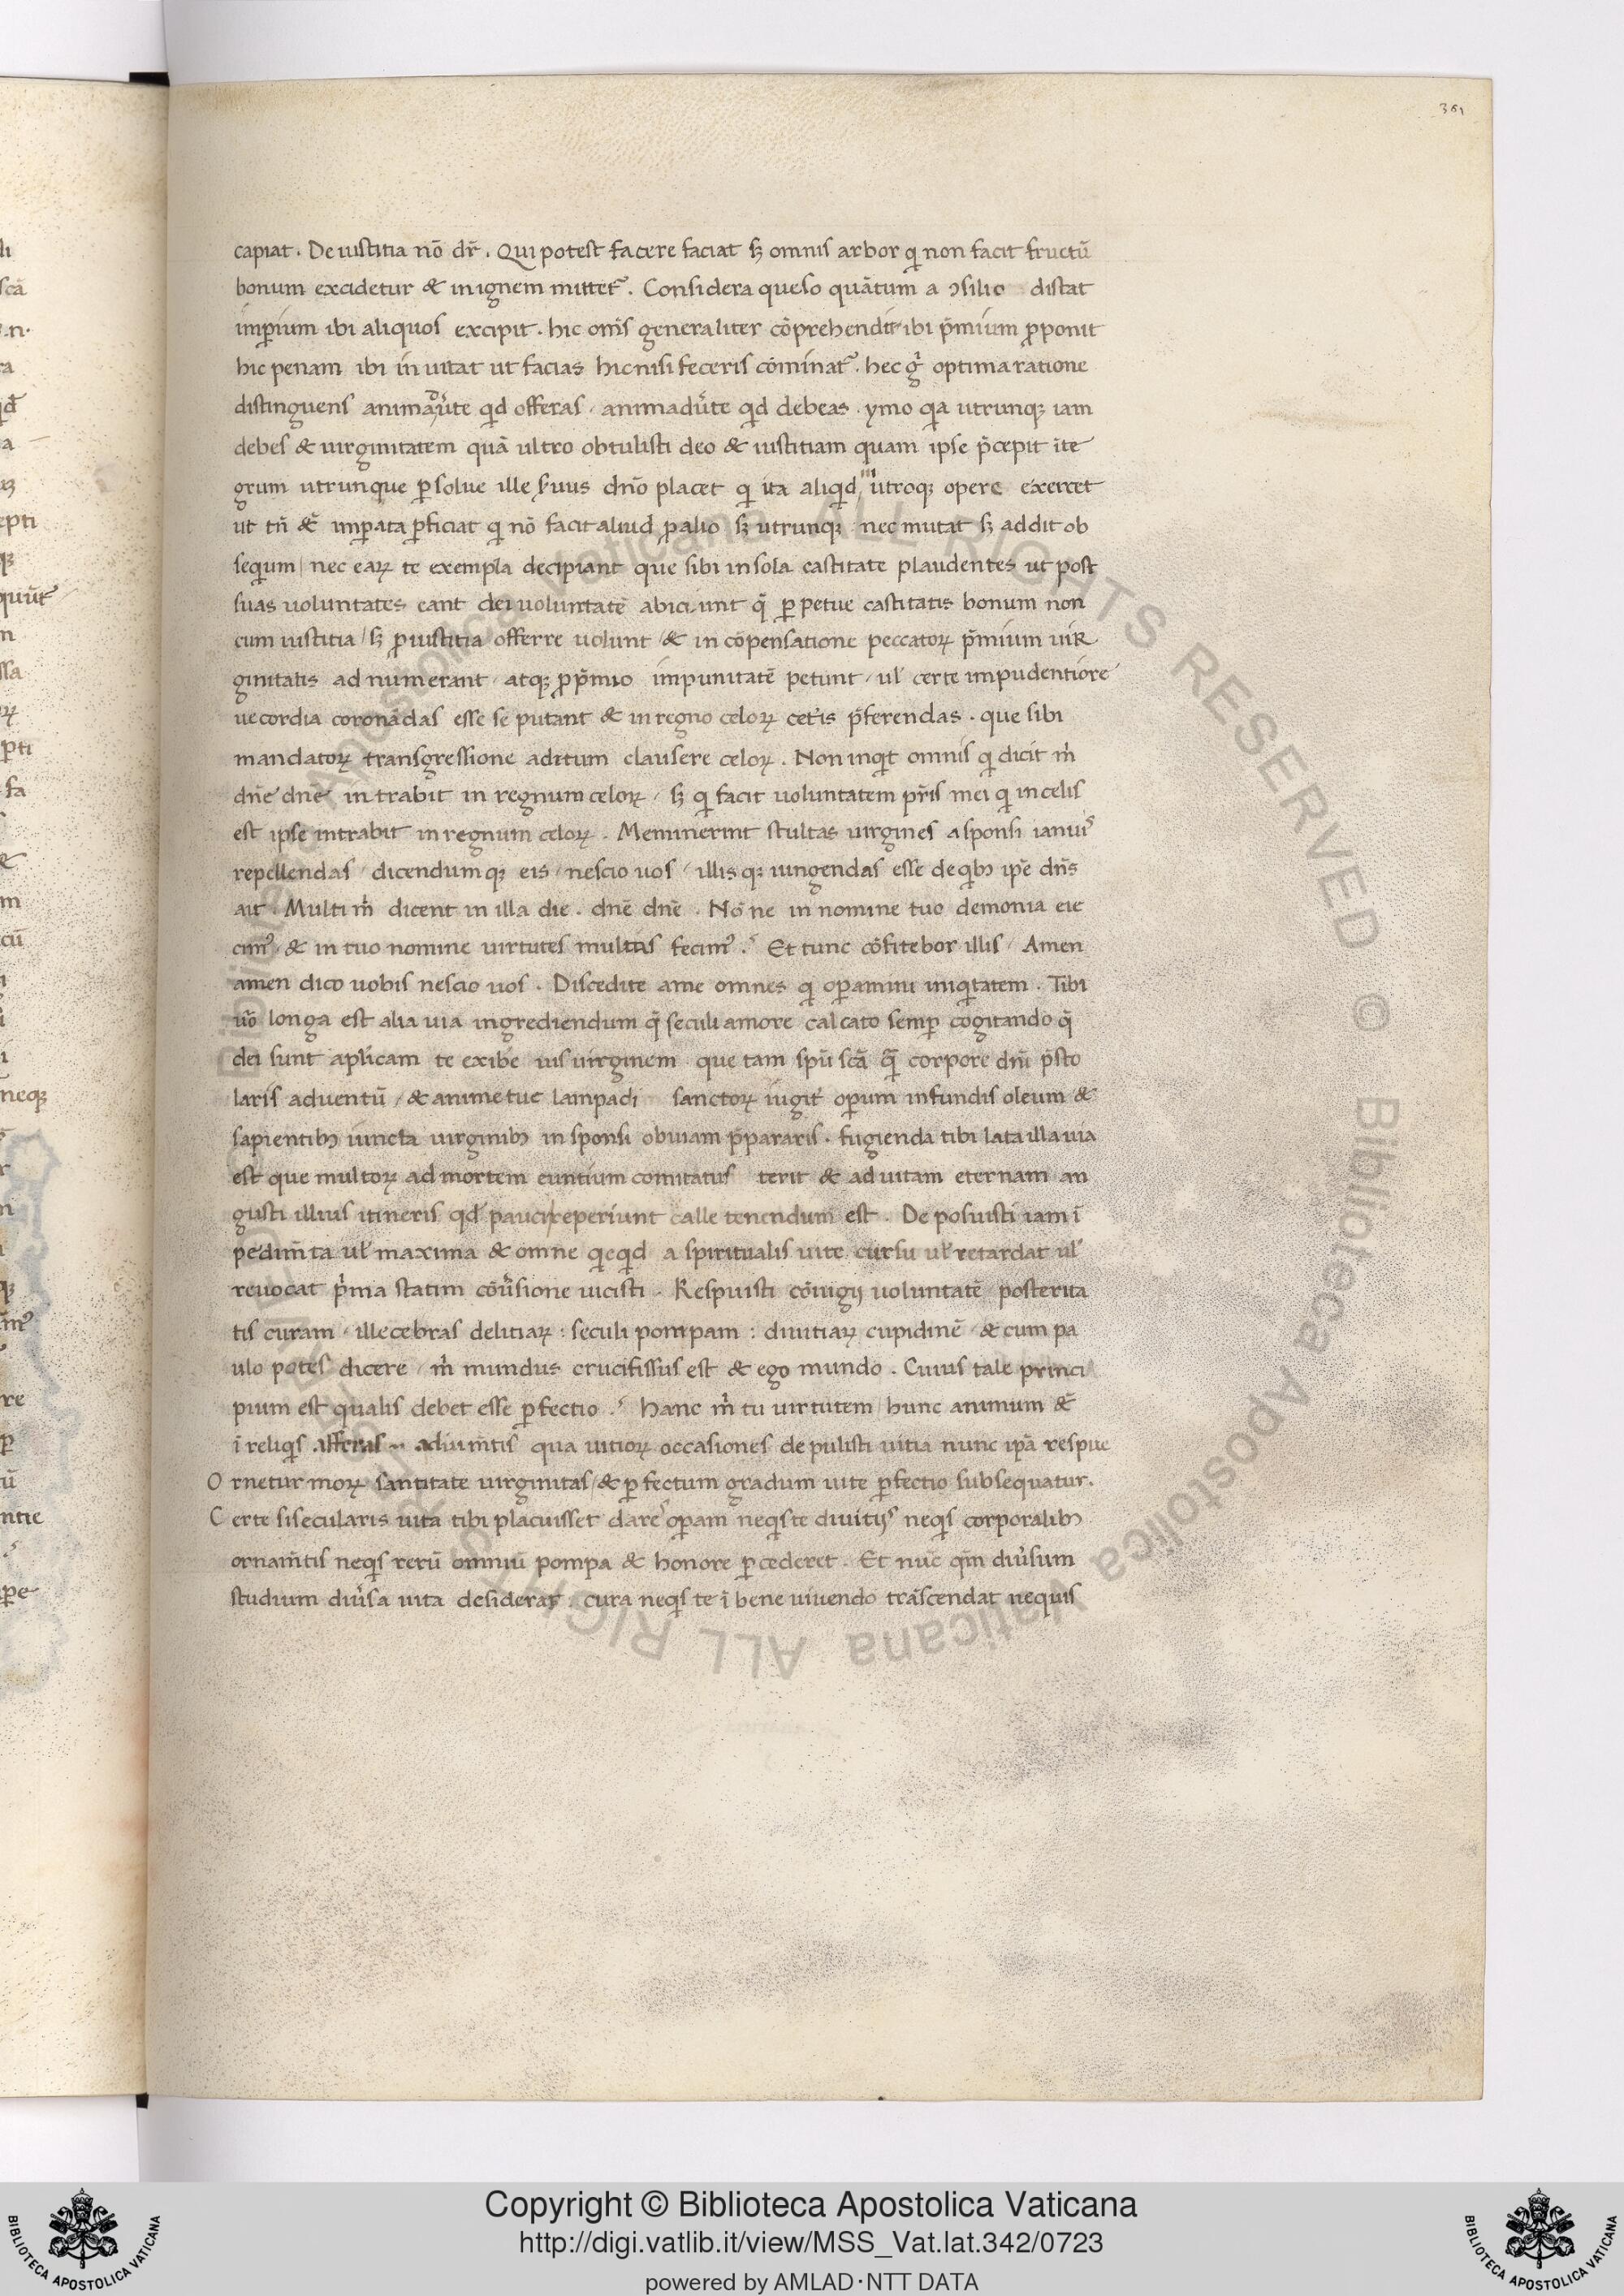 361
capiat. De iustitia nō dr̄. Qui potest facere faciat sꝫ omnis arbor q̇ non facit fructū
bonum excidetur & in ignem mittet᷑. Considera queso quātum a ↄsilio distat
imꝑium ibi aliquos excipit. hic om̄s generaliter cōprehendit ibi p̄mium ꝓponit
hic penam ibi inuitat ut facias hic nisi feceris cōminat᷑. hec gͦ optima ratione
distinguens animaduˀte qͥd offeras / animaduˀte qͥd debeas. ymo qͥa utrunqꝫ iam
debes & uirginitatem quā ultro obtulisti deo & iustitiam quam ipse p̄cepit īte
grum utrunque ꝑsolue ille ẜuus dn̄o placet qͥ ita aliqͥd utroqꝫ opere exercet
ut tn̄ & imꝑata ꝑficiat qͥ nō facit aliud ꝓ alio sꝫ utrunqꝫ nec mutat sꝫ addit ob
seqͥum / nec eaꝝ te exempla decipiant que sibi in sola castitate plaudentes ut post
suas uoluntates eant dei uoluntatē abiciunt q̄ ꝑpetue castitatis bonum non
cum iustitia / sꝫ ꝓ iustitia offerre uolunt / & in cōpensatione peccatoꝝ p̄mium uir
ginitatis ad numerant / atqꝫ ꝓ p̄mio impunitatē petunt / ul̓ certe impudentiore
uecordia coronādas esse se putant & in regno celoꝝ cet̓is p̄ferendas. que sibi
mandatoꝝ transgressione aditum clausere celoꝝ. Non inqͥt omnis qͥ dicit mͥ
dn̄e dn̄e intrabit in regnum celoꝝ / sꝫ qͥ facit uoluntatem pr̄is mei qͥ in celis
est ipse intrabit in regnum celoꝝ. Meminerint stultas uirgines a sponsi ianuis
repellendas / dicendumqꝫ eis / nescio uos / illisqꝫ iungendas esse de qͥbꝫ ip̄e dn̄s
ait. Multi mͥ dicent in illa die. dn̄e dn̄e. Nōne in nomine tuo demonia eie
cimꝰ & in tuo nomine uirtutes multas fecimꝰ? Et tunc cōfitebor illis / Amen
amen dico uobis nescio uos. Discedite a me omnes qͥ oꝑamini iniqͥtatem. Tibi
uͦo longa est alia uia ingrediendum q̄ seculi amore calcato semꝑ cogitando q̄
dei sunt apl̓icam te exibe uis uirginem que tam spū scā q̄ corpore dn̄i p̄sto
laris aduentū / & anime tue lampadi sanctoꝝ iugit̓ oꝑum infundis oleum &
sapientibꝫ iuncta uirginibꝫ in sponsi obuiam p̄pararis. fugienda tibi lata illa uia
est que multoꝝ ad mortem euntium comitatus terit & ad uitam eternam an
gusti illius itineris qd̓ pauci reperiunt calle tenendum est. Deposuisti iam ī
pedim̄ta ul̓ maxima & omne qͥcqͥd a spiritualis uite cursu ul̓ retardat ul̓
reuocat pͥma statim cōuˀsione uicisti. Respuisti cōiugij uoluntatē posterita
tis curam / illecebras delitiaꝝ : seculi pompam : diuitiaꝝ cupidinē / & cum pa
ulo potes dicere / mͥ mundus crucifissus est & ego mundo. Cuius tale princi
pium est qualis debet esse ꝑfectio? Hanc mͥ tu uirtutem / hunc animum &
ī reliqͥs afferas adium̄tis qua uitioꝝ occasiones depulisti uitia nunc ip̄a respue
Ornetur moꝝ santitate uirginitas / & ꝑfectum gradum uite ꝑfectio subsequatur.
Certe si secularis uita tibi placuisset dares oꝑam neqͥs te diuitijs neqͥs corporalibꝫ
ornam̄tis neqͥs rerū omniū pompa & honore p̄cederet. Et nūc qm̄ diuˀsum
studium diuˀsa uita desiderat. cura neqͥs te ī bene uiuendo trāscendat nequis
Copyright © Biblioteca Apostolica Vaticana
http://digi.vatlib.it/view/MSS_Vat.lat.342/0723
powered by AMLAD·NTT DATA